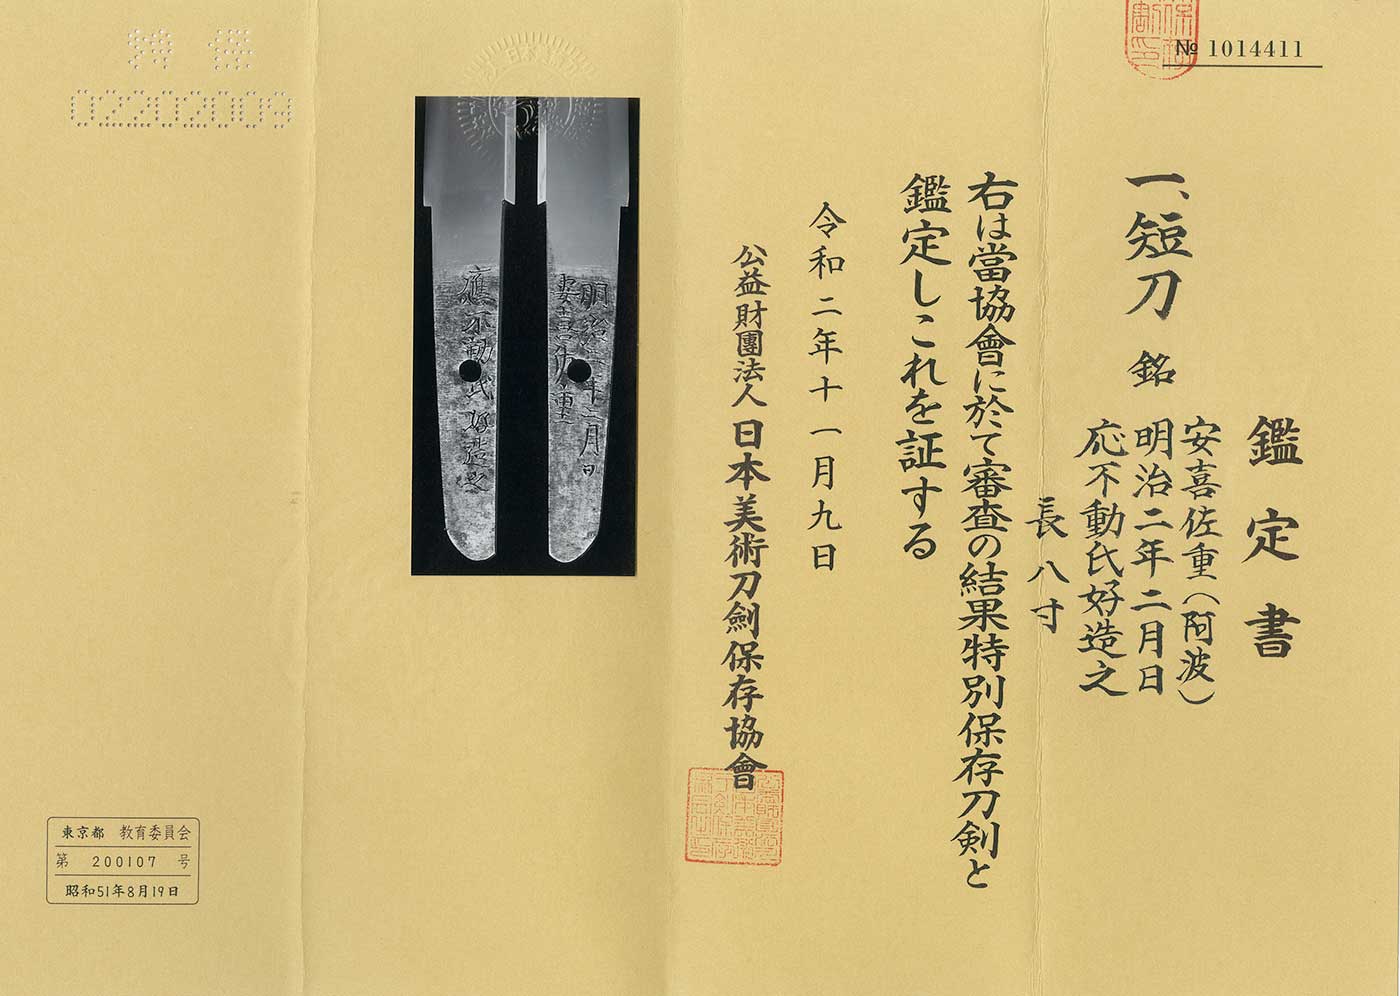 № 1014411
鑑定書
一、短刀 銘
安喜佐重(阿波)
明治二年二月日
応不動氏好造之
長八寸
右は當協會に於て審査の結果特別保存刀剣と
鑑定しこれを証する
令和二年十一月九日
公益財團法人 日本美術刀劍保存協會
明治二年二月日
安喜佐重
應不動氏好造之
02202009
東京都 教育委員会
第 200107 号
昭和51年8月19日